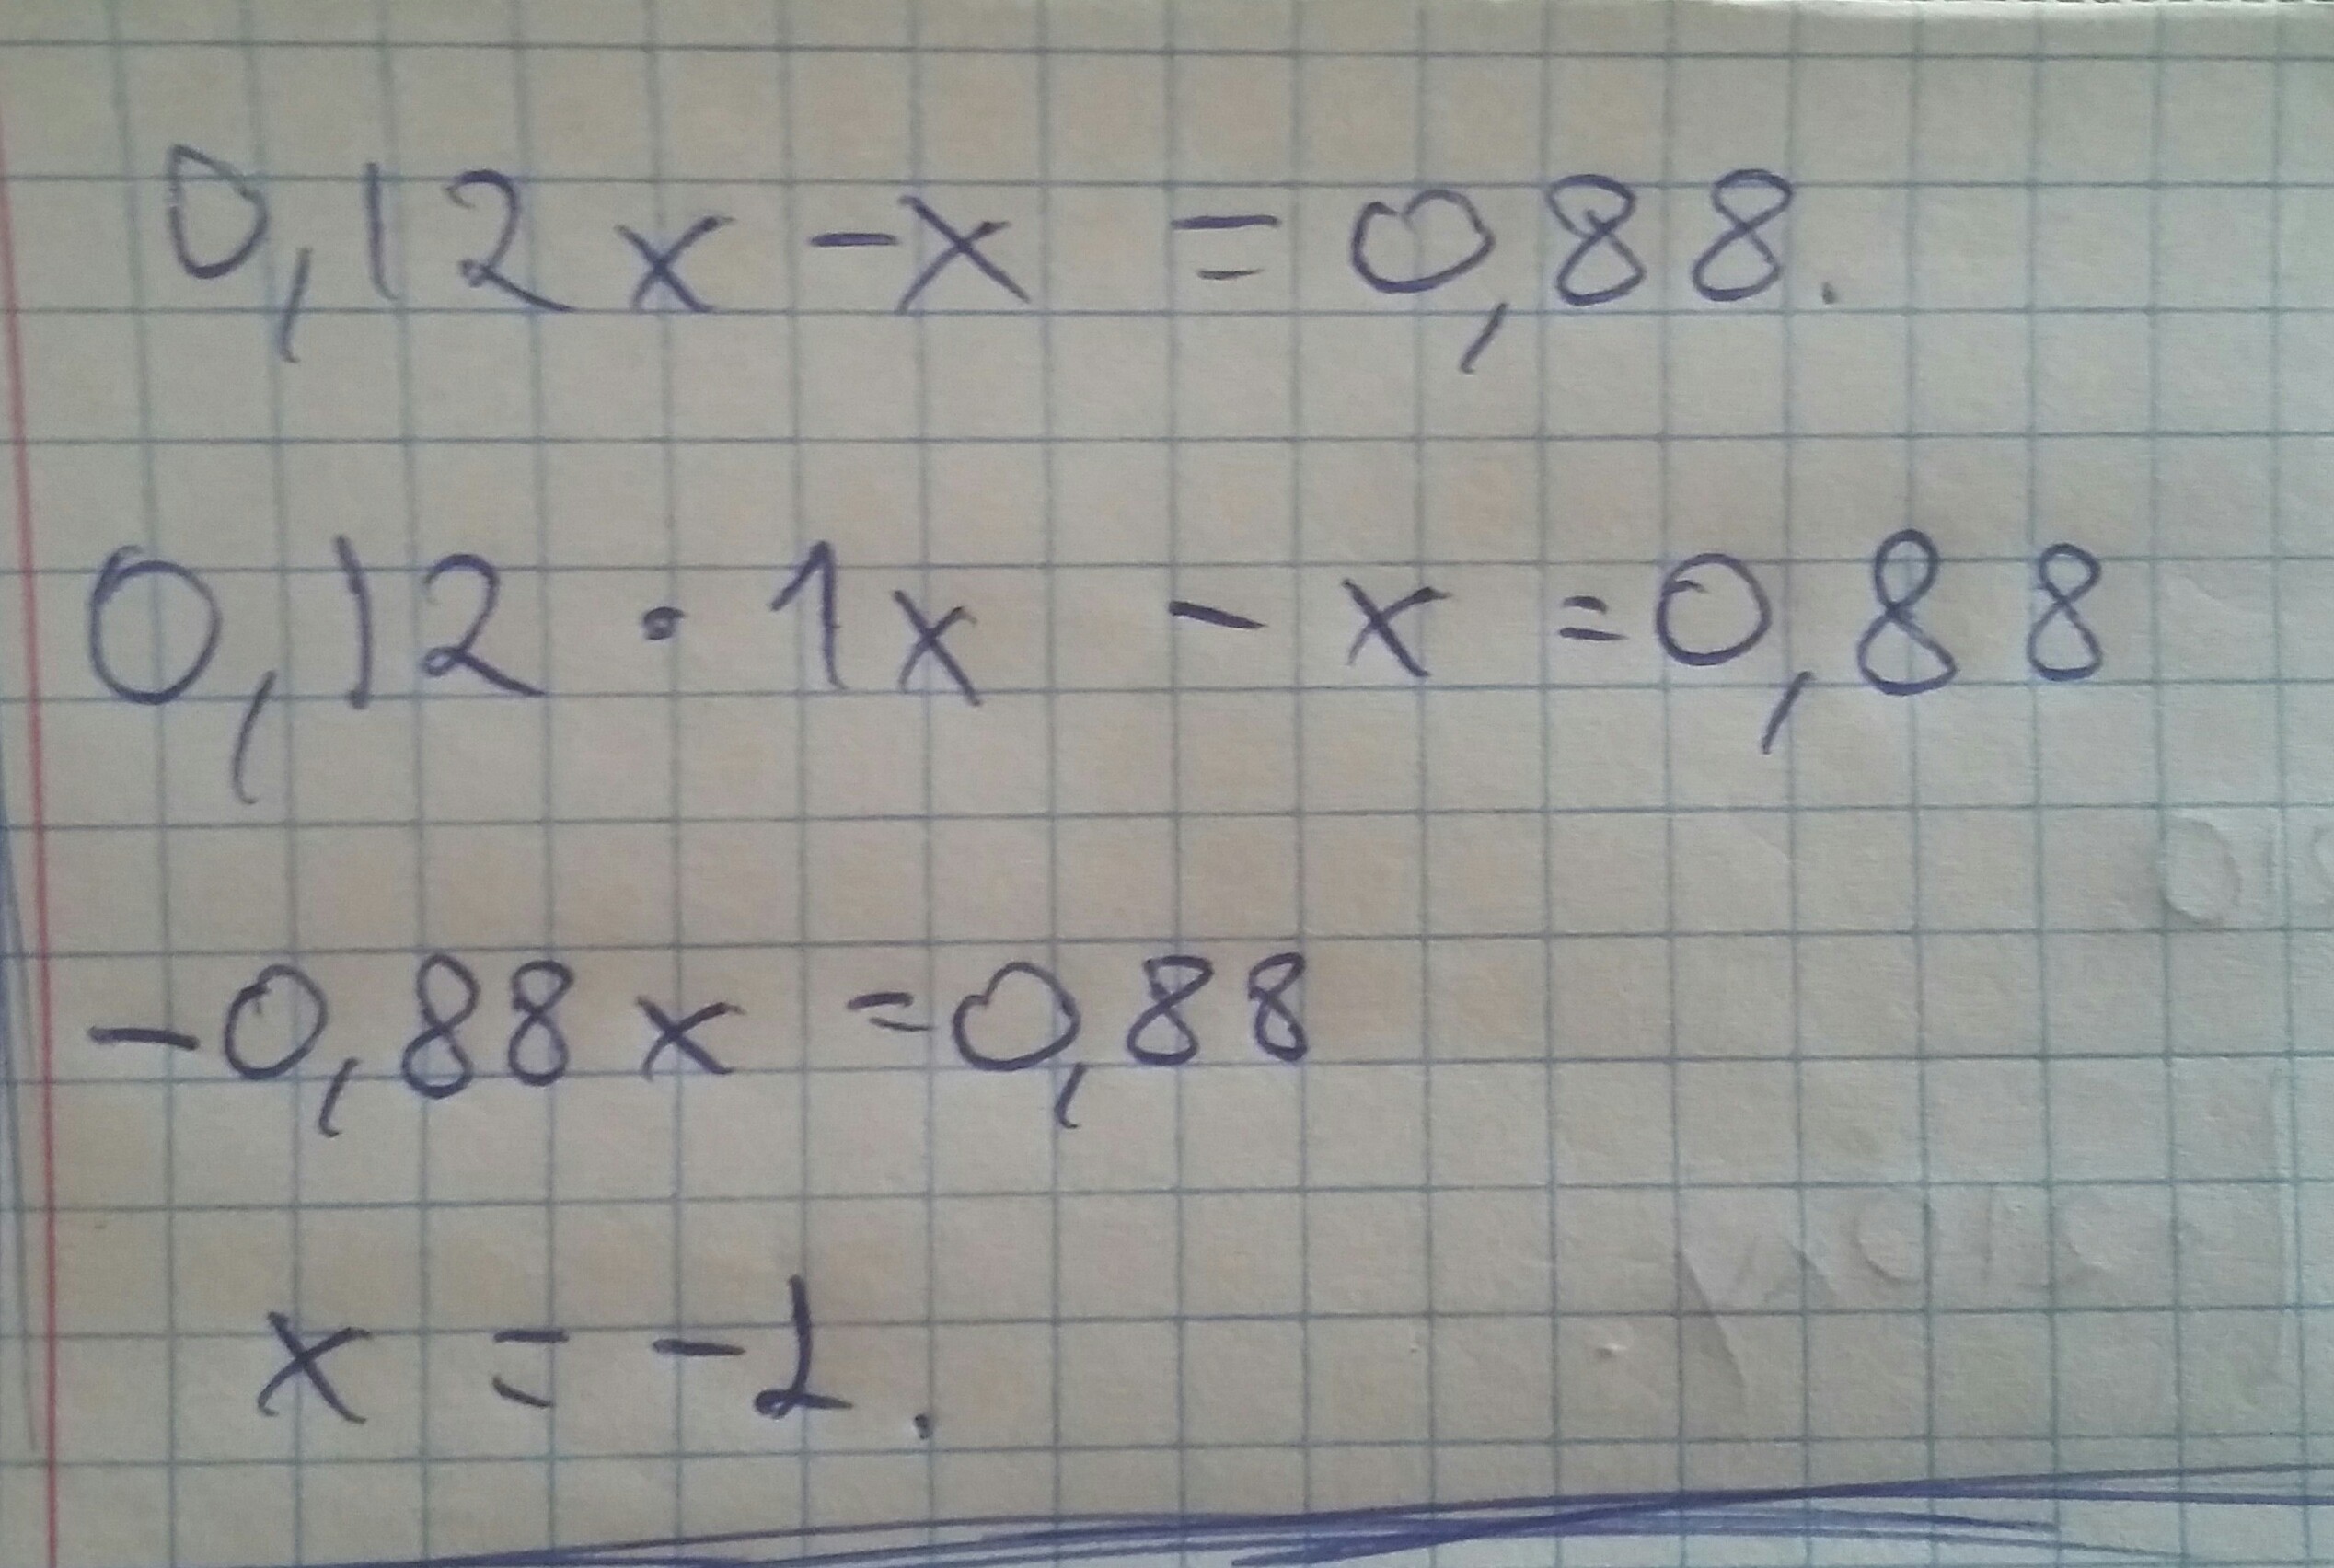 0,12x - x = 0,88.
0,12 · 1x - x = 0,88
-0,88x = 0,88
x = -1.